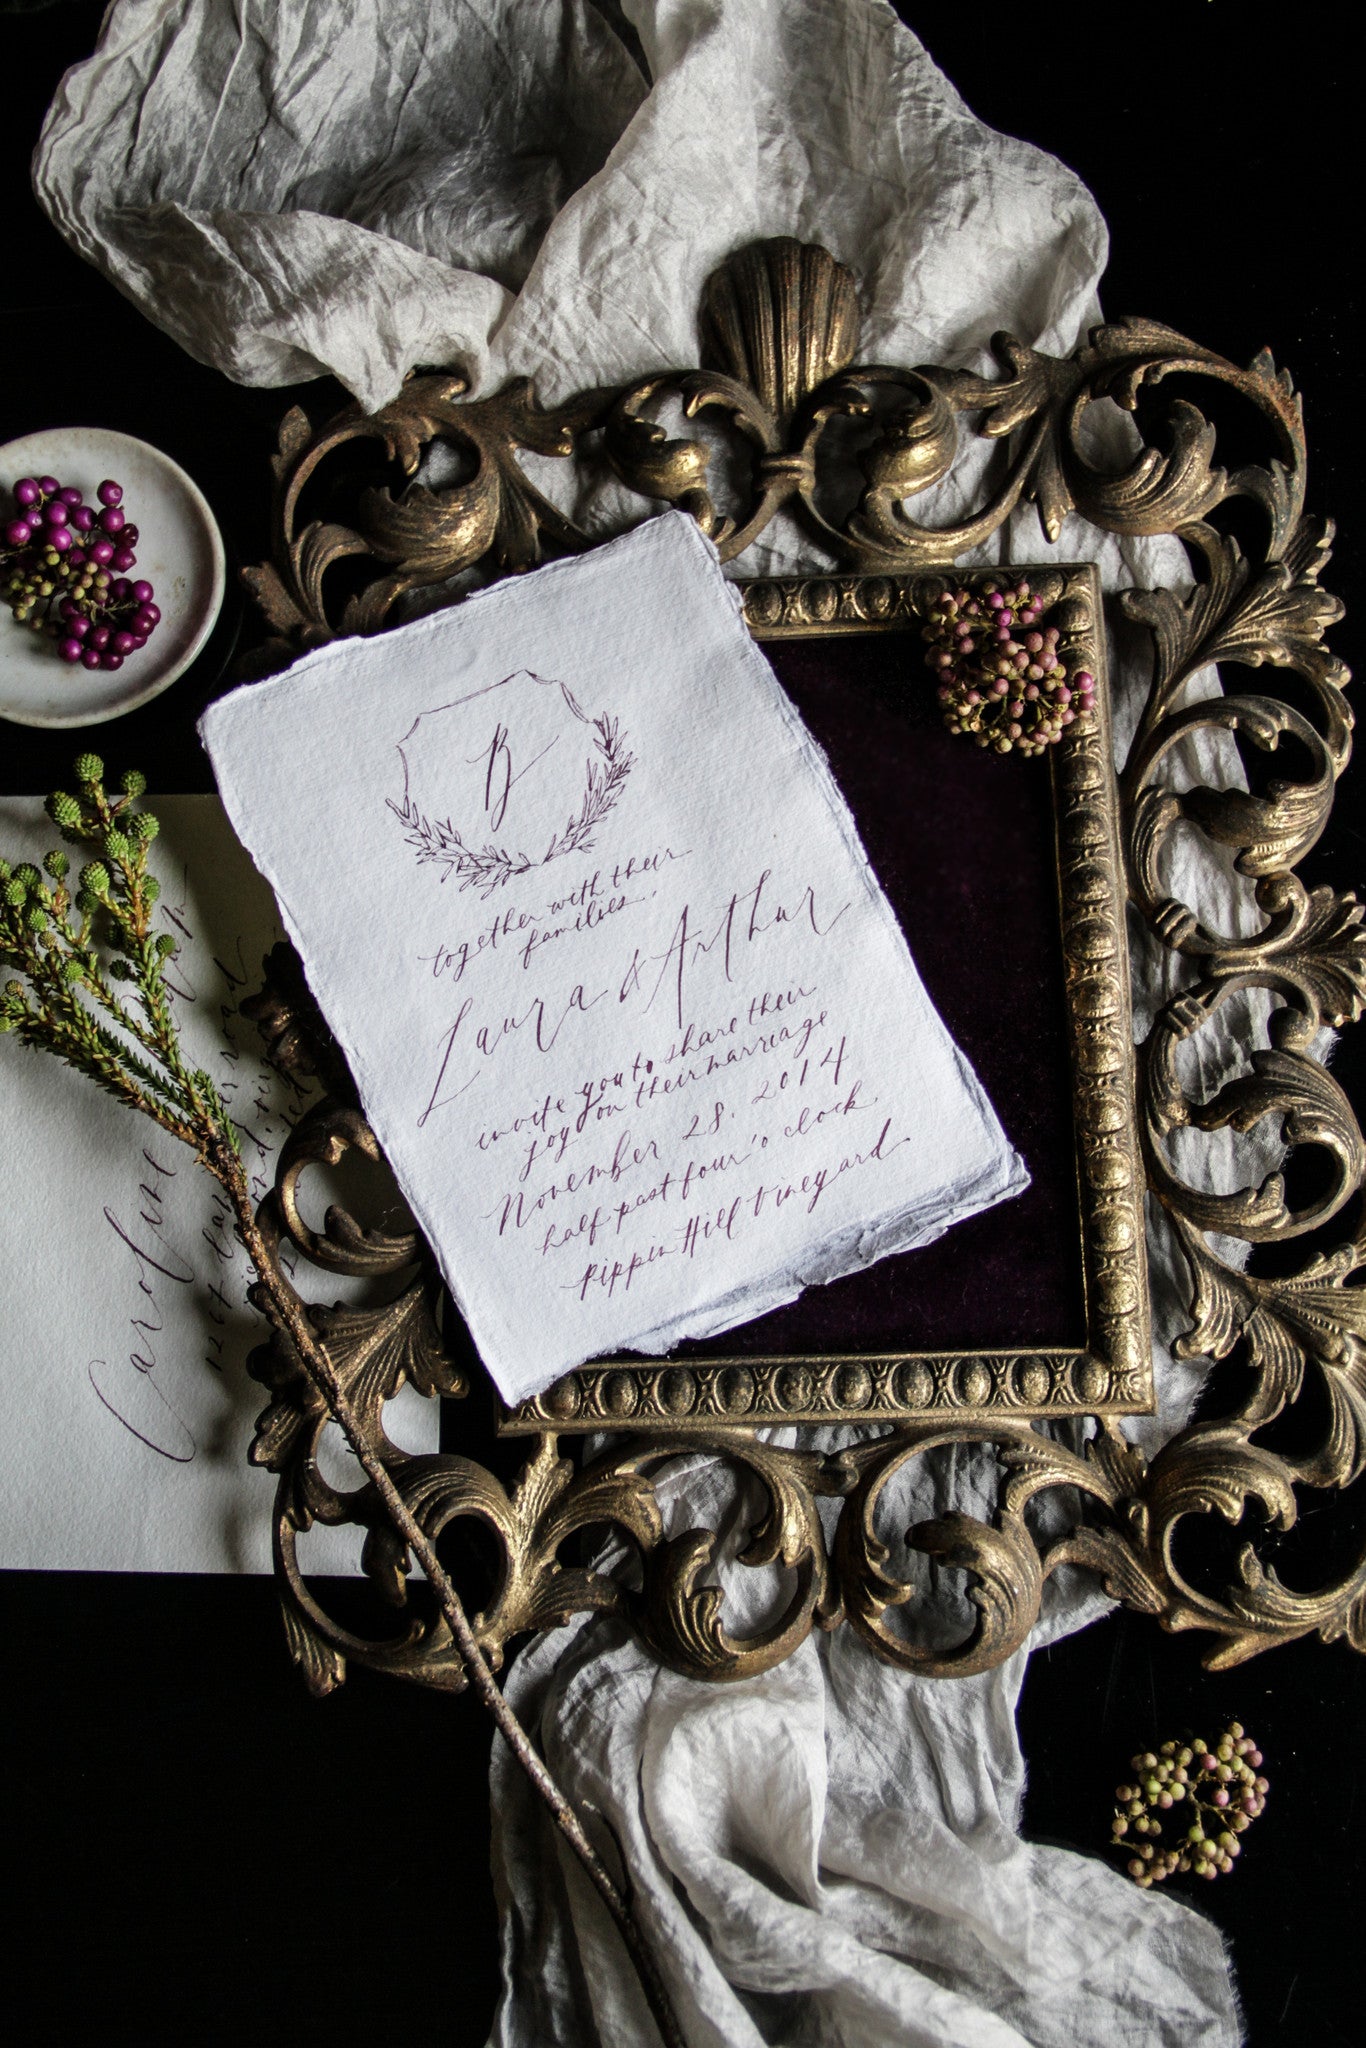 B
together with their
families.
Laura & Arthur
invite you to share their
joy on their marriage
November 28. 2014
half past four'o clock.
Pippin Hill Vineyard
Caroline
road